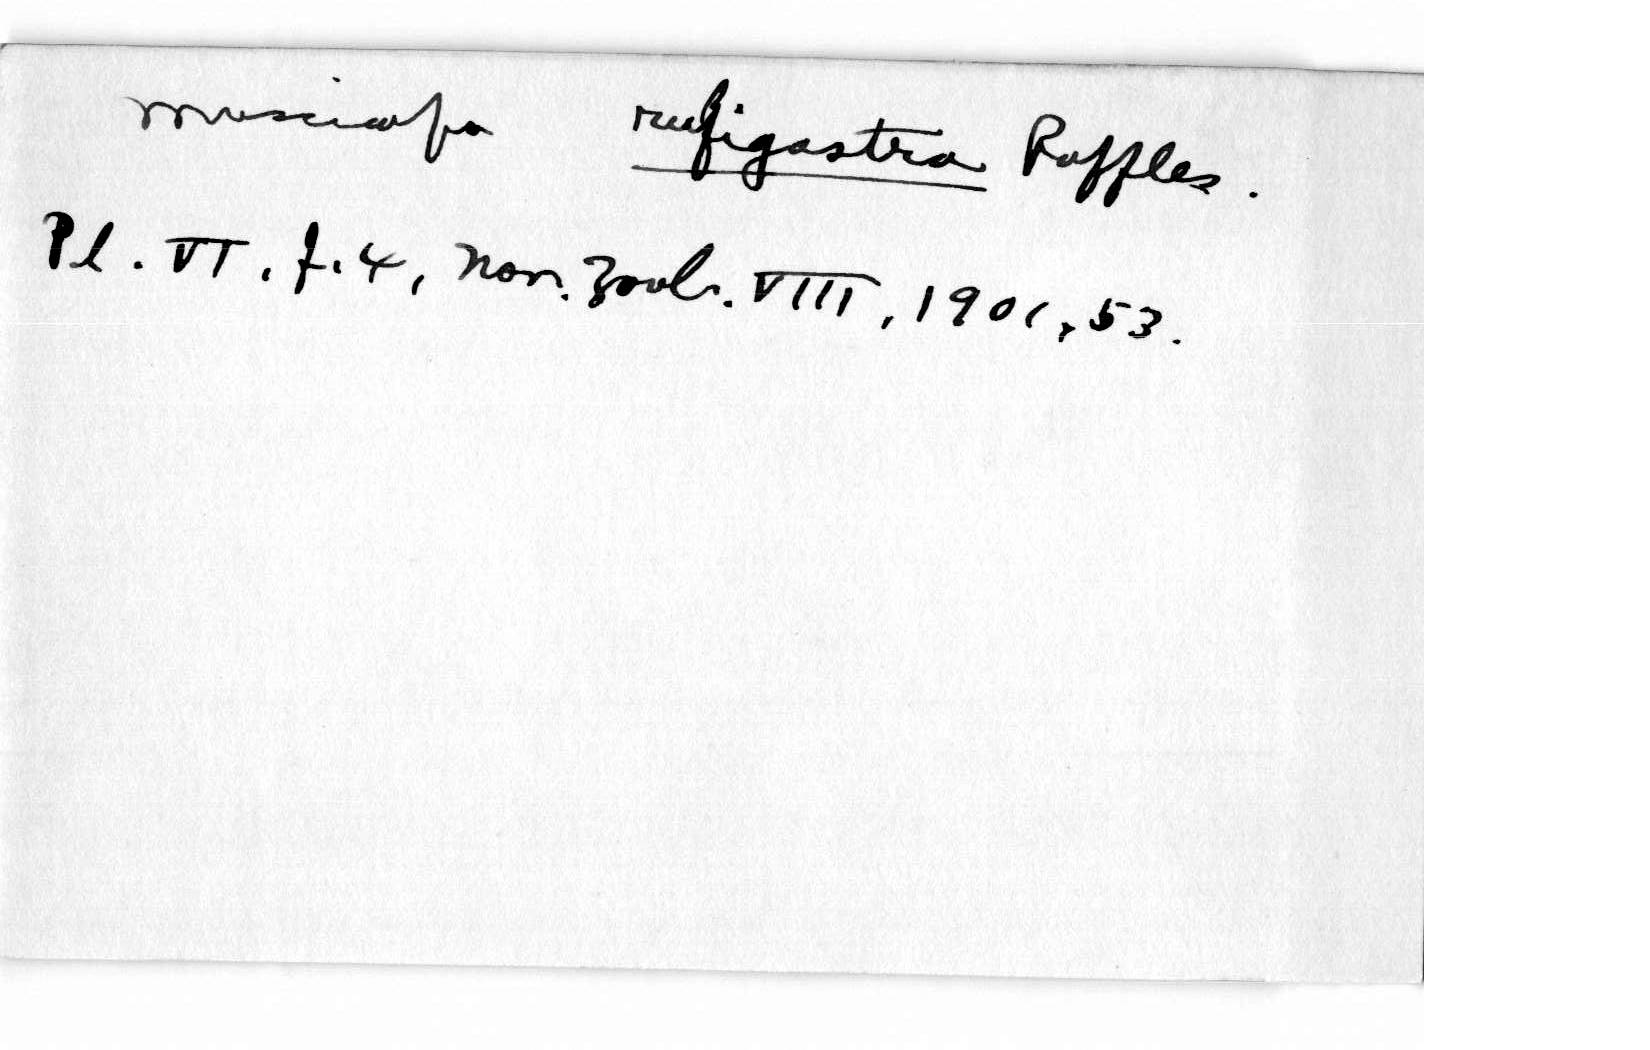 Muscicapa rufigastra Raffles.
Pl. VI, f.4, Nov. Zool. VIII, 1901, 53.